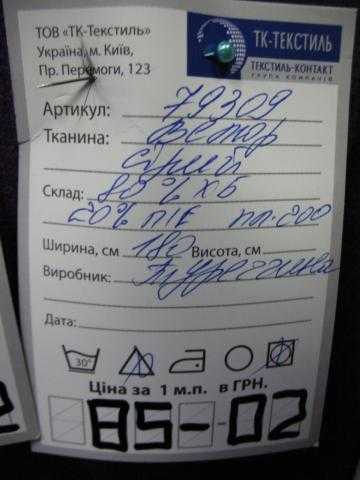 ТОВ «ТК-Текстиль»
Україна, м. Київ,
Пр. Перемоги, 123
ТК-ТЕКСТИЛЬ
ТЕКСТИЛЬ-КОНТАКТ
ГРУПА КОМПАНІЙ
Артикул: 79309
Тканина: Футер
сірий
Склад: 80% ХБ
20% ПЕ пл-200
Ширина, см 180 Висота, см
Виробник: Туреччина
Дата:
30°
Ціна за 1 м.п. в ГРН.
85-02